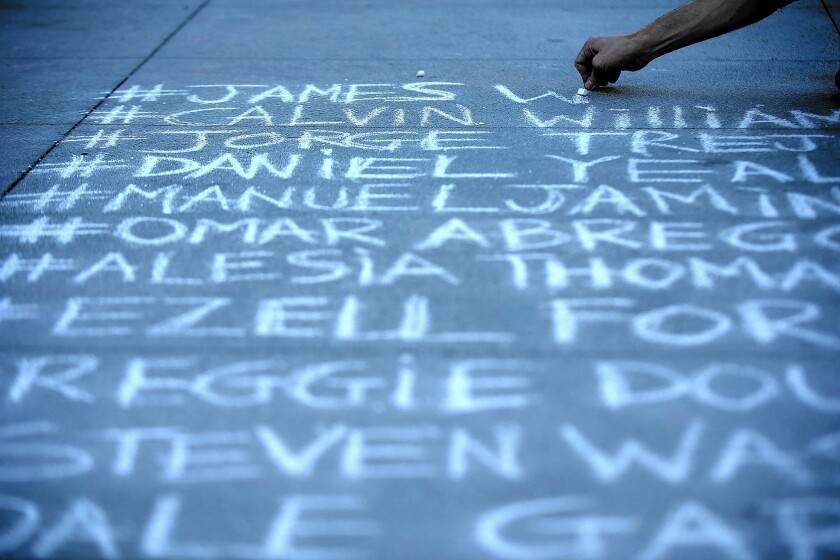 #JAMES W
#CALVIN WiLLiAM
#JORGE TREJ
#DANiEL YEAL
#MANUEL JAMiN
#OMAR ABREGO
#ALESiA THOMA
EZELL FOR
REGGiE DOU
STEVEN WAS
DALE GAR